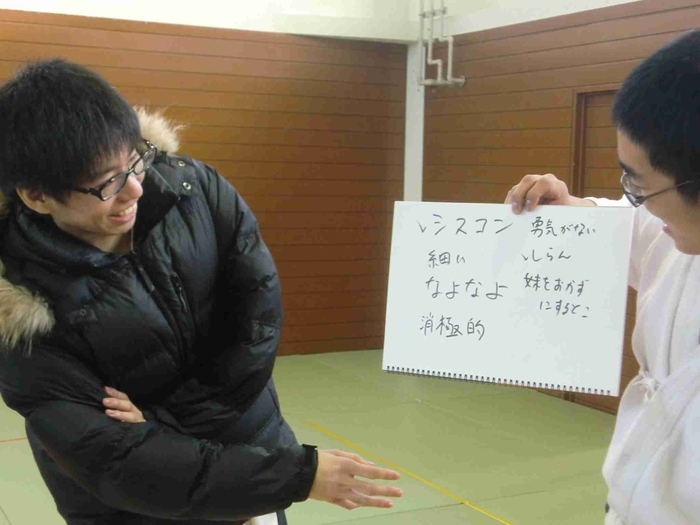 ✓シスコン
細い
なよなよ
消極的
勇気がない
✓しらん
妹をおかず
にするとこ